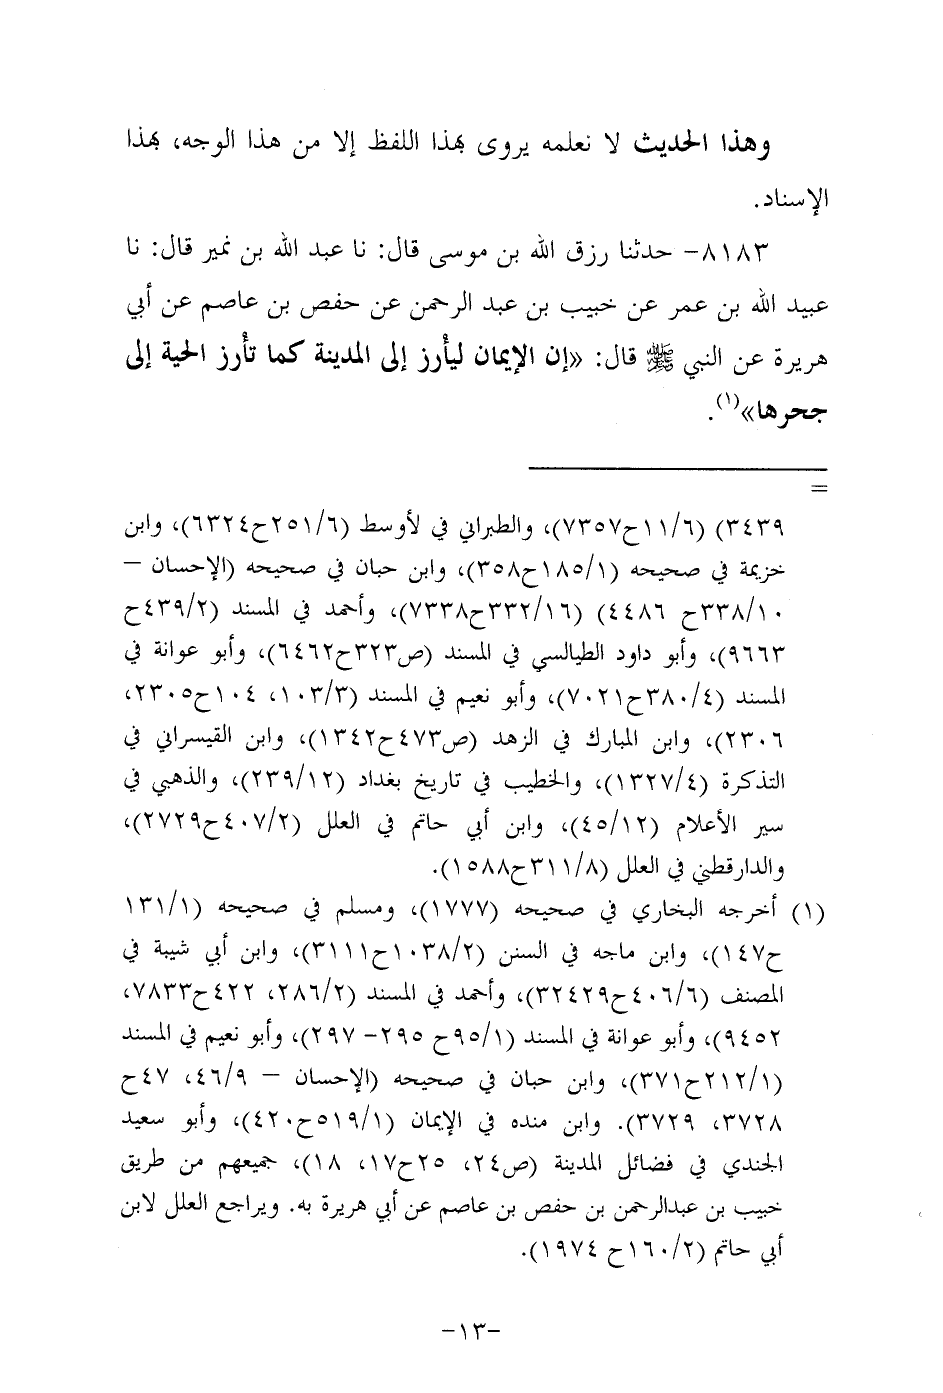 وهذا الحديث لا نعلمه يروى بهذا اللفظ إلا من هذا الوجه، بهذا
الإسناد.
٨١٨٣- حدثنا رزق الله بن موسى قال: نا عبد الله بن نمير قال: نا
عبيد الله بن عمر عن خبيب بن عبد الرحمن عن حفص بن عاصم عن أبي
هريرة عن النبي ﷺ قال: «إن الإيمان ليأرز إلى المدينة كما تأرز الحية إلى
جحرها»(١).
=
٣٤٣٩) (١١/٦ح٧٣٥٧)، والطبراني في لأوسط (٢٥١/٦ح٦٣٢٤)، وابن
خزيمة في صحيحه (١٨٥/١ح٣٥٨)، وابن حبان في صحيحه (الإحسان –
٣٣٨/١٠ح ٤٤٨٦) (٣٣٢/١٦ح٧٣٣٨)، وأحمد في المسند (٤٣٩/٢ح
٩٦٦٣)، وأبو داود الطيالسي في المسند (ص٣٢٣ح٦٤٦٢)، وأبو عوانة في
المسند (٣٨٠/٤ح٧٠٢١)، وأبو نعيم في المسند (١٠٣/٣، ١٠٤ح٢٣٠٥،
٢٣٠٦)، وابن المبارك في الزهد (ص٤٧٣ح١٣٤٢)، وابن القيسراني في
التذكرة (١٣٢٧/٤)، والخطيب في تاريخ بغداد (٢٣٩/١٢)، والذهبي في
سير الأعلام (٤٥/١٢)، وابن أبي حاتم في العلل (٤٠٧/٢ح٢٧٢٩)،
والدارقطني في العلل (٣١١/٨ح١٥٨٨).
(١) أخرجه البخاري في صحيحه (١٧٧٧)، ومسلم في صحيحه (١٣١/١
ح١٤٧)، وابن ماجه في السنن (١٠٣٨/٢ح٣١١١)، وابن أبي شيبة في
المصنف (٤٠٦/٦ح٣٢٤٢٩)، وأحمد في المسند (٢٨٦/٢، ٤٢٢ح٧٨٣٣،
٩٤٥٢)، وأبو عوانة في المسند (٩٥/١ح ٢٩٥- ٢٩٧)، وأبو نعيم في المسند
(٢١٢/١ح٣٧١)، وابن حبان في صحيحه (الإحسان – ٤٦/٩، ٤٧ح
٣٧٢٨، ٣٧٢٩). وابن منده في الإيمان (٥١٩/١ح٤٢٠)، وأبو سعيد
الجندي في فضائل المدينة (ص٢٤، ٢٥ح١٧، ١٨)، جميعهم من طريق
خبيب بن عبدالرحمن بن حفص بن عاصم عن أبي هريرة به. ويراجع العلل لابن
أبي حاتم (١٦٠/٢ح ١٩٧٤).
-١٣-